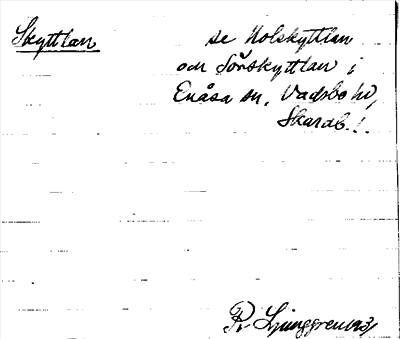 Skyttlan
se Holskyttlan
och Sörskyttlan i
Enåsa sn, Vadsbo hd,
Skarab. l.
R. Ljunggren 1931